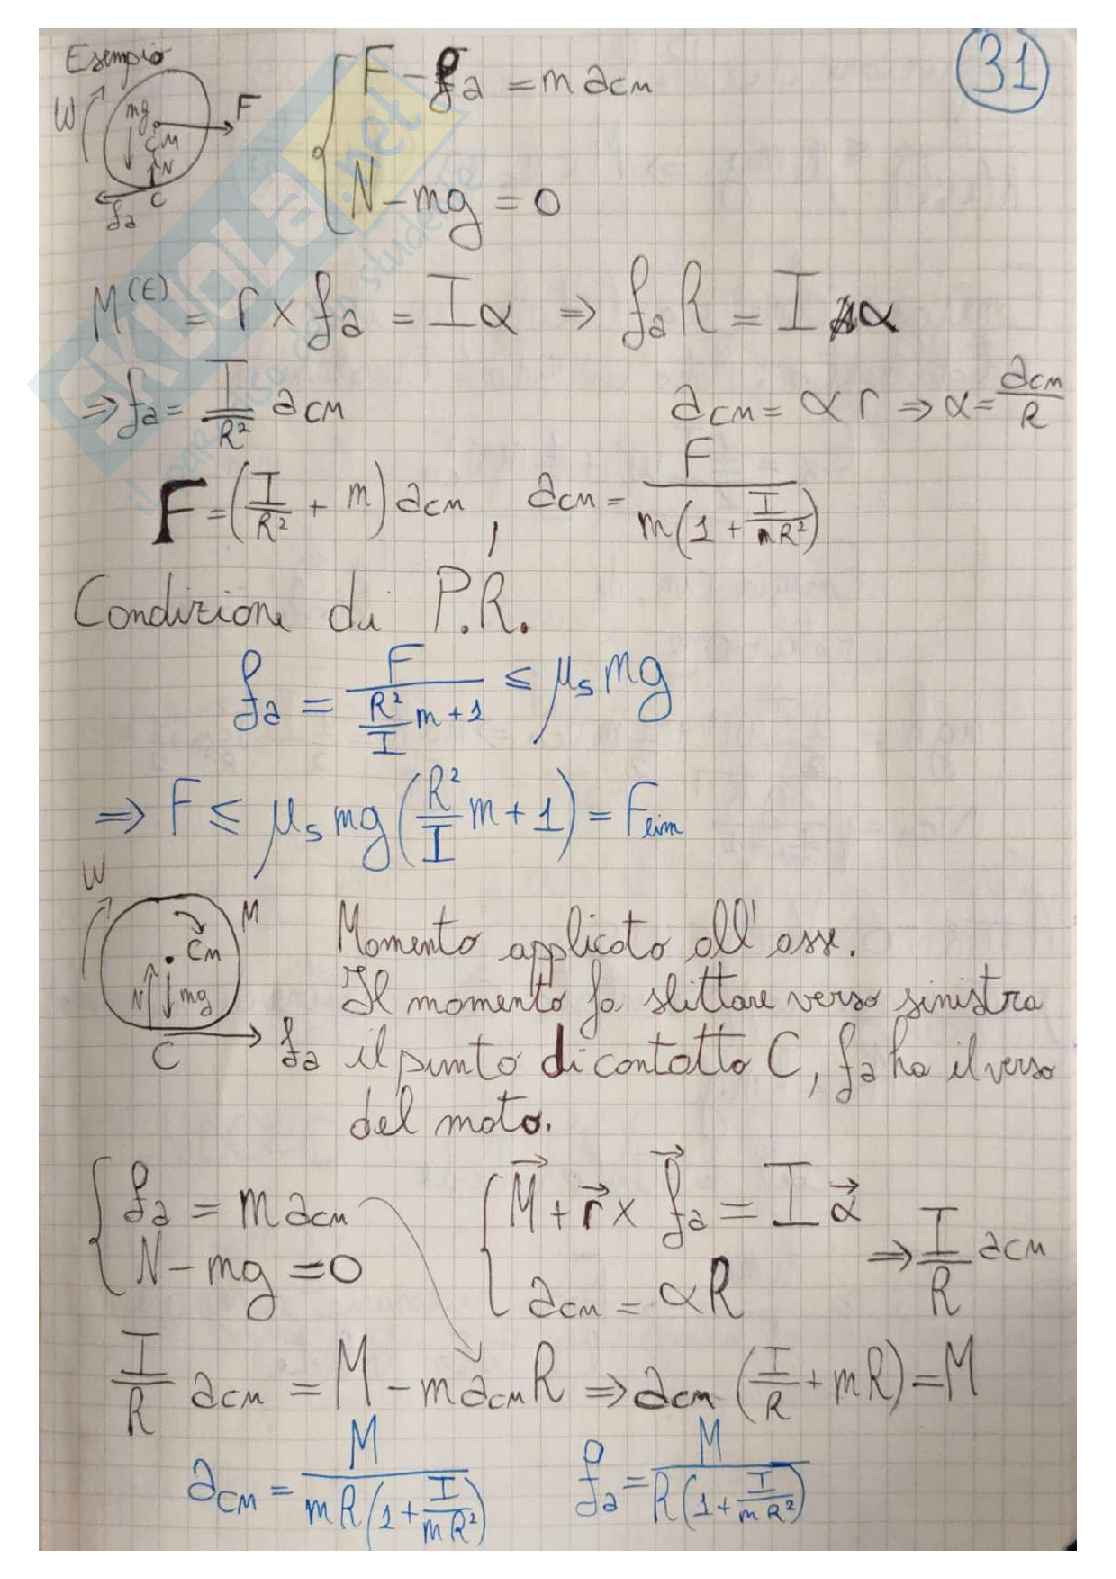 Esempio
31
W
mg
CM
N
F
C
fa
F - fa = m acm
N - mg = 0
M^(E) = r × fa = Iα ⇒ fa R = I α
⇒ fa = I/R² acm
acm = α r ⇒ α = acm/R
F = (I/R² + m) acm , acm = F/(m(1 + I/(mR²)))
Condizione di P.R.
fa = F/(R²/I m + 1) ≤ μs mg
⇒ F ≤ μs mg (R²/I m + 1) = Flim
W
M
CM
N
mg
C
fa
Momento applicato all'asse.
Il momento fa slittare verso sinistra
il punto di contatto C, fa ha il verso
del moto.
fa = m acm
N - mg = 0
M⃗ + r⃗ × f⃗a = I α⃗
acm = αR
⇒ I/R acm
I/R acm = M - m acm R ⇒ acm (I/R + mR) = M
acm = M/(mR(1 + I/(mR²)))
fa = M/(R(1 + I/(mR²)))
SKUOLA.net